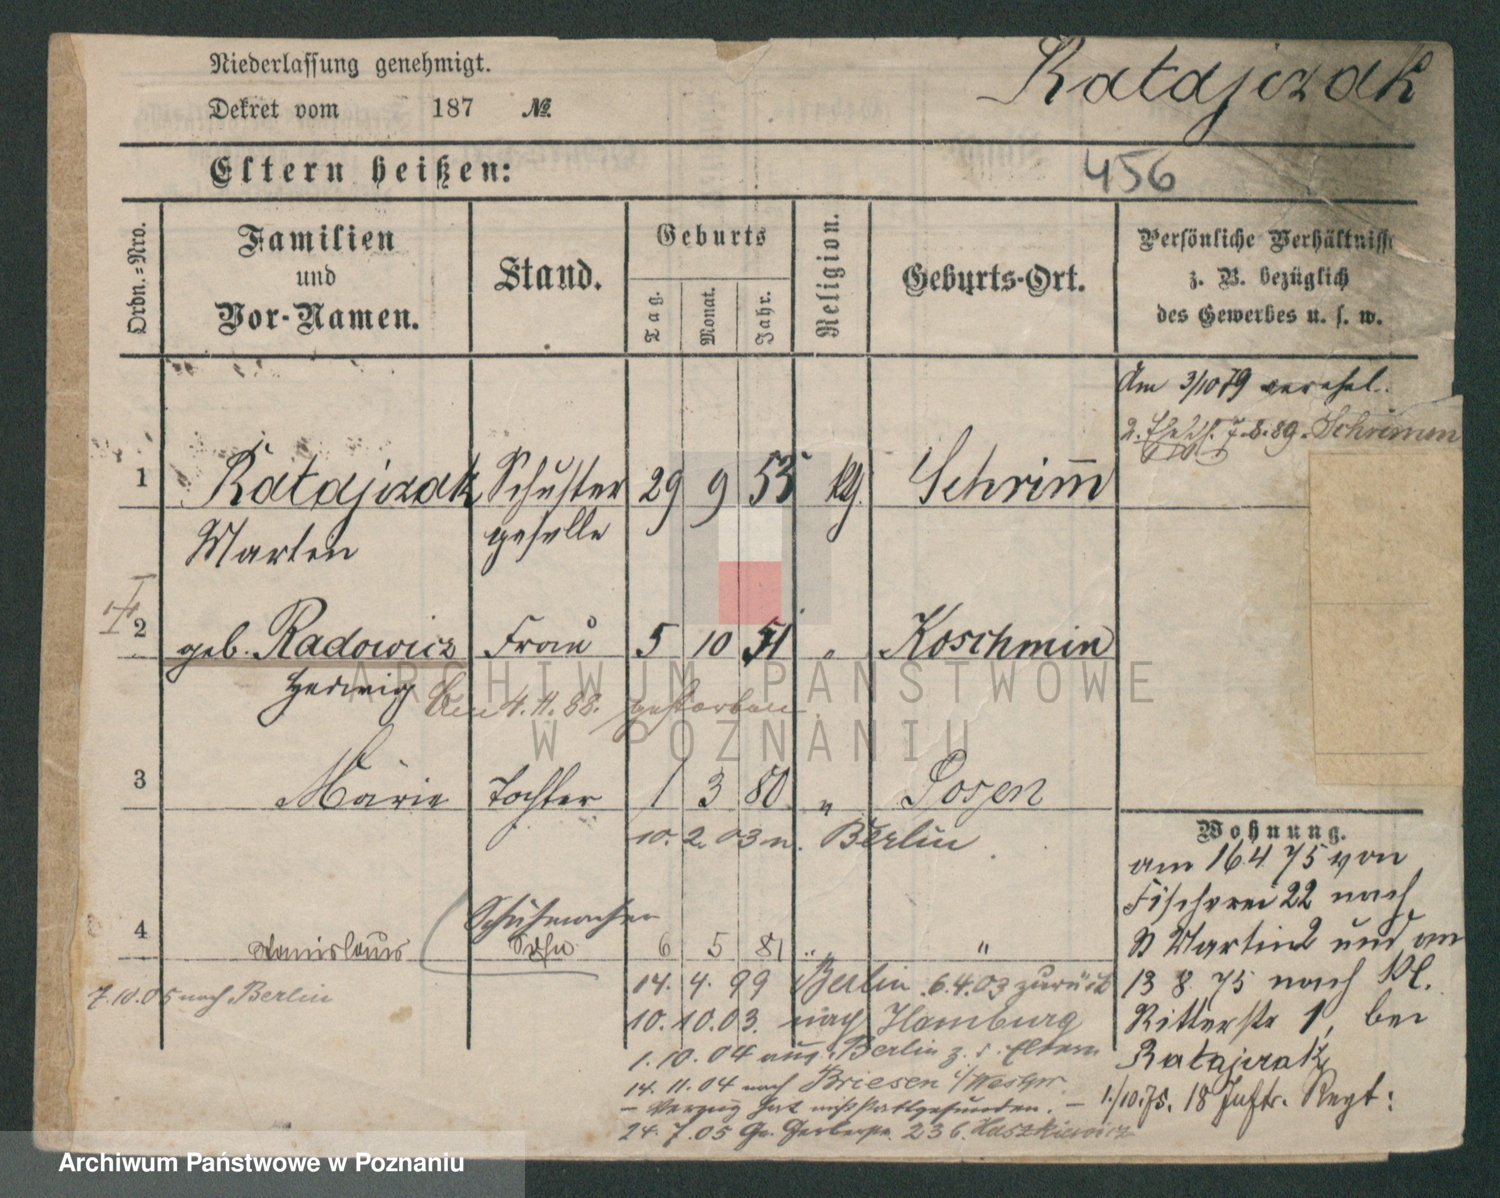 Niederlassung genehmigt.
Ratajczak
Dekret vom 187 №
Eltern heißen:
456
Ordn.-Nro.
Familien
und
Vor-Namen.
Stand.
Geburts
Tag.
Monat.
Jahr.
Religion.
Geburts-Ort.
Persönliche Verhältnisse
z. B. bezüglich
des Gewerbes u. s. w.
Am 3/10 79 verehel.
7.8.89. Schrimm
1 Ratajczak Schuster 29 9 53 kg. Schrim̅
Marten geselle
2 geb. Radowicz Frau 5 10 51 " Koschmin
Hedwig Am 4.11.88. gestorben
3 Marie Tochter 1 3 80 " Posen
10. 2. 03 n. Berlin
Schuhmacher
4 Stanislaus Sohn 6 5 81 " "
7.10.05 nach Berlin
14. 4. 99 Berlin 6.4.03 zurück
10. 10. 03. nach Hamburg
1. 10. 04 aus Berlin z. d. Eltern
14. 11. 04 nach Briesen i/Westpr.
– Verzug hat nicht stattgefunden. –
24. 7. 05 Gr. Gerberstr. 236. Kaszkiewicz
Wohnung.
am 16 4 75 von
Fischerei 22 nach
St Martin 2 und am
13 8 75 nach Kl.
Ritterstr 1, bei
Ratajczak
1./10.75. 18 Inftr. Regt:
ARCHIWUM PAŃSTWOWE
W POZNANIU
Archiwum Państwowe w Poznaniu